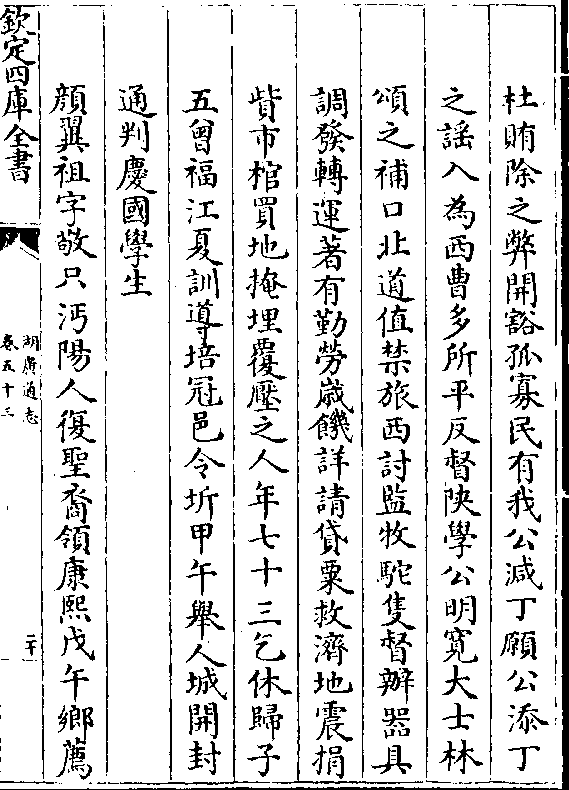 杜賄除之弊開豁孤寡民有我公減丁願公添丁
之謡入為西曹多所平反督陜學公明寛大士林
頌之補口北道值禁旅西討監牧駝隻督辦器具
調發轉運著有勤勞嵗饑詳請貸粟救濟地震捐
貲市棺買地掩埋覆壓之人年七十三乞休歸子
五曾福江夏訓導培冠邑令圻甲午舉人城開封
通判慶國學生
顔翼祖字敬只沔陽人復聖裔領康熙戊午鄉薦
欽定四庫全書
湖廣通志
卷五十三
二十